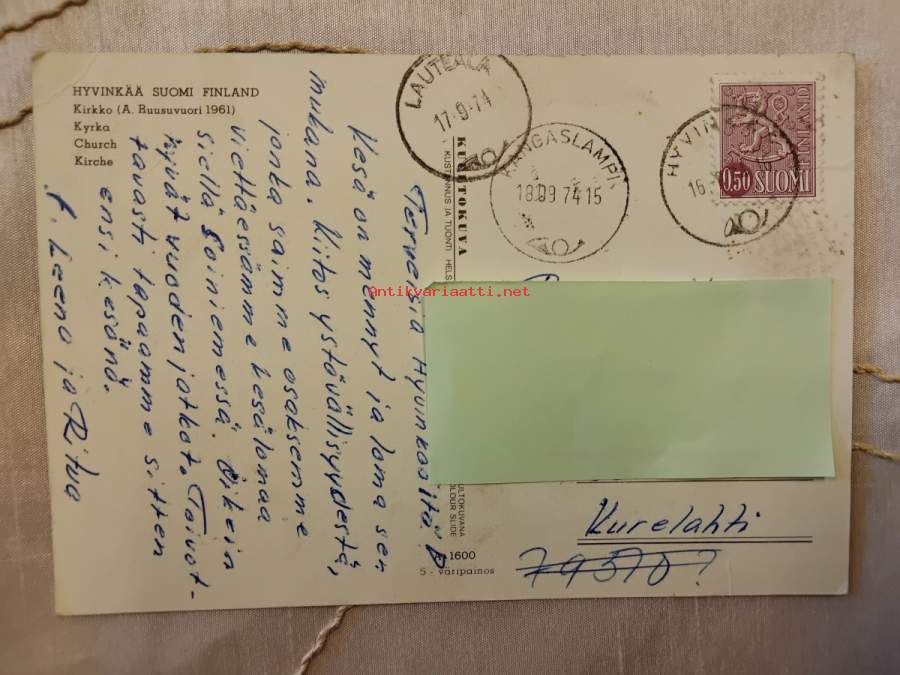 HYVINKÄÄ SUOMI FINLAND
Kirkko (A. Ruusuvuori 1961)
Kyrka
Church
Kirche
Terveisiä Hyvinkäältä!
Kesä on mennyt ja loma sen
mukana. Kiitos ystävällisyydestä,
jonka saimme osaksemme
viettäessämme kesälomaa
siellä Soiniemessä. Oikein
hyvät vuoden jatkot. Toivot-
tavasti tapaamme sitten
ensi kesänä.
t. Leena ja Ritva
KUVATOKUVA
KUSTANNUS JA TUONTI HELS
ULTOKUVANA
COLOUR SLIDE
1600
5 - väripainos
LAUTEALA
17-9-74
KANGASLAMPI
18.09 74 15
HYVIN
16.
0,50 SUOMI
FINLAND
Antikvariaatti.net
Kurelahti
79570?